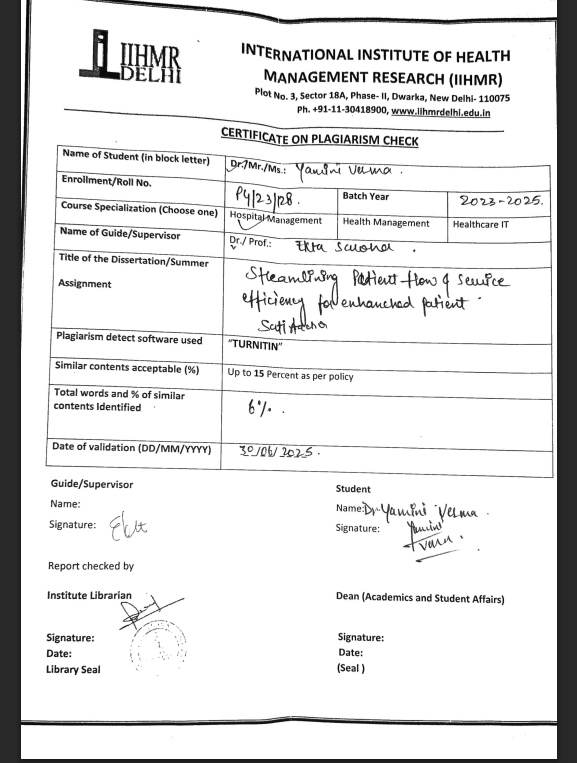 IIHMR
DELHI
INTERNATIONAL INSTITUTE OF HEALTH
MANAGEMENT RESEARCH (IIHMR)
Plot No. 3, Sector 18A, Phase- II, Dwarka, New Delhi- 110075
Ph. +91-11-30418900, www.iihmrdelhi.edu.in
CERTIFICATE ON PLAGIARISM CHECK
Name of Student (in block letter) Dr./Mr./Ms.: Yamini Verma.
Enrollment/Roll No. P4/23/128. Batch Year 2023-2025.
Course Specialization (Choose one) Hospital Management Health Management Healthcare IT
Name of Guide/Supervisor Dr./ Prof.: Ekta
Title of the Dissertation/Summer
Assignment
Streamlining Patient flow & service
efficiency for enhanched patient
Plagiarism detect software used "TURNITIN"
Similar contents acceptable (%) Up to 15 Percent as per policy
Total words and % of similar
contents Identified
6%.
Date of validation (DD/MM/YYYY) 30/06/2025.
Guide/Supervisor
Name:
Signature: Ekta
Student
Name: Dr. Yamini Verma.
Signature: Yamini
Verma.
Report checked by
Institute Librarian
Signature:
Date:
Library Seal
Dean (Academics and Student Affairs)
Signature:
Date:
(Seal )